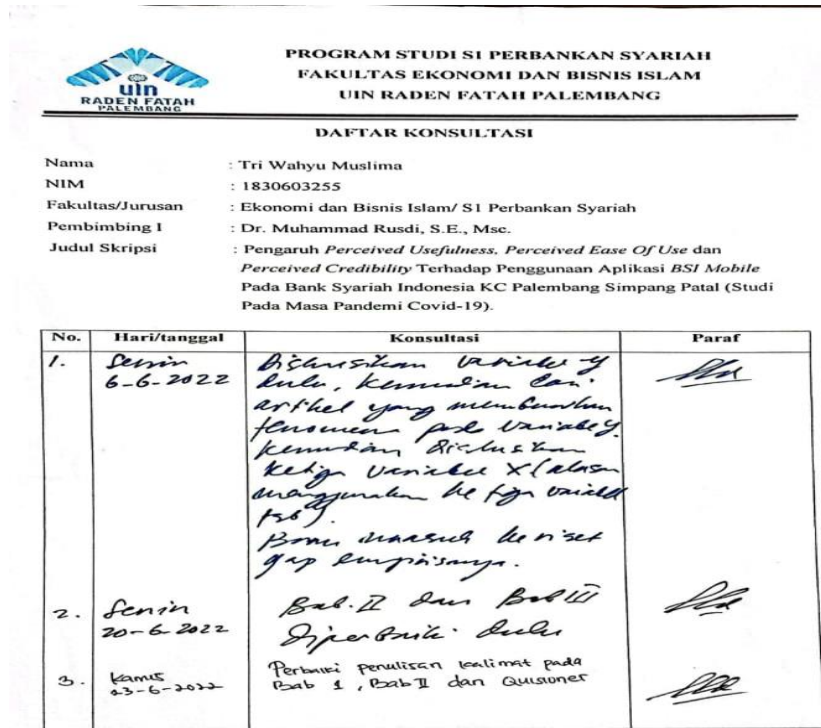 uin
RADEN FATAH
PALEMBANG
PROGRAM STUDI S1 PERBANKAN SYARIAH
FAKULTAS EKONOMI DAN BISNIS ISLAM
UIN RADEN FATAH PALEMBANG
DAFTAR KONSULTASI
Nama : Tri Wahyu Muslima
NIM : 1830603255
Fakultas/Jurusan : Ekonomi dan Bisnis Islam/ S1 Perbankan Syariah
Pembimbing I : Dr. Muhammad Rusdi, S.E., Msc.
Judul Skripsi : Pengaruh Perceived Usefulness, Perceived Ease Of Use dan
Perceived Credibility Terhadap Penggunaan Aplikasi BSI Mobile
Pada Bank Syariah Indonesia KC Palembang Simpang Patal (Studi
Pada Masa Pandemi Covid-19).
No. Hari/tanggal Konsultasi Paraf
1. Senin Diskusikan variabel Y
6-6-2022 dulu, kemudian cari
artikel yang
fenomena pada variabel Y.
kemudian diskusikan
ketiga variabel X (alasan
menggunakan ke tiga variabel
tsb).
Baru masuk ke riset
gap empirisnya.
2. Senin Bab. II dan Bab III
20-6-2022 Diperbaiki dulu
3. Kamis Perbaiki penulisan kalimat pada
23-6-2022 Bab 1, Bab II dan Quisioner